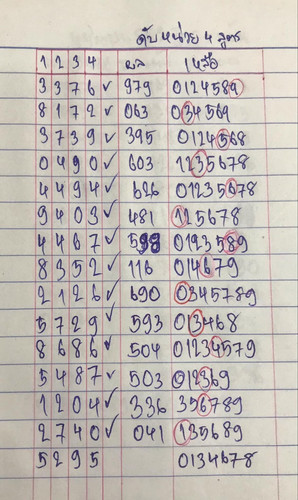 ดับหน่วย 4 สูตร
1 2 3 4 ผล เหลือ
3 3 7 6 ✓ 979 0124589
8 1 7 2 ✓ 063 034569
3 7 3 9 ✓ 395 0124568
0 4 9 0 ✓ 603 1235678
4 4 9 4 ✓ 626 01235678
9 4 0 3 ✓ 481 125678
4 4 6 7 ✓ 599 0123589
8 3 5 2 ✓ 116 014679
2 1 2 6 ✓ 690 0345789
5 7 2 9 ✓ 593 013468
8 6 8 6 ✓ 504 01234579
5 4 8 7 ✓ 503 012369
1 2 0 4 ✓ 336 356789
2 7 4 0 ✓ 041 135689
5 2 9 5 0134678